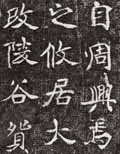 自周興焉
之攸居大
改陵谷貿